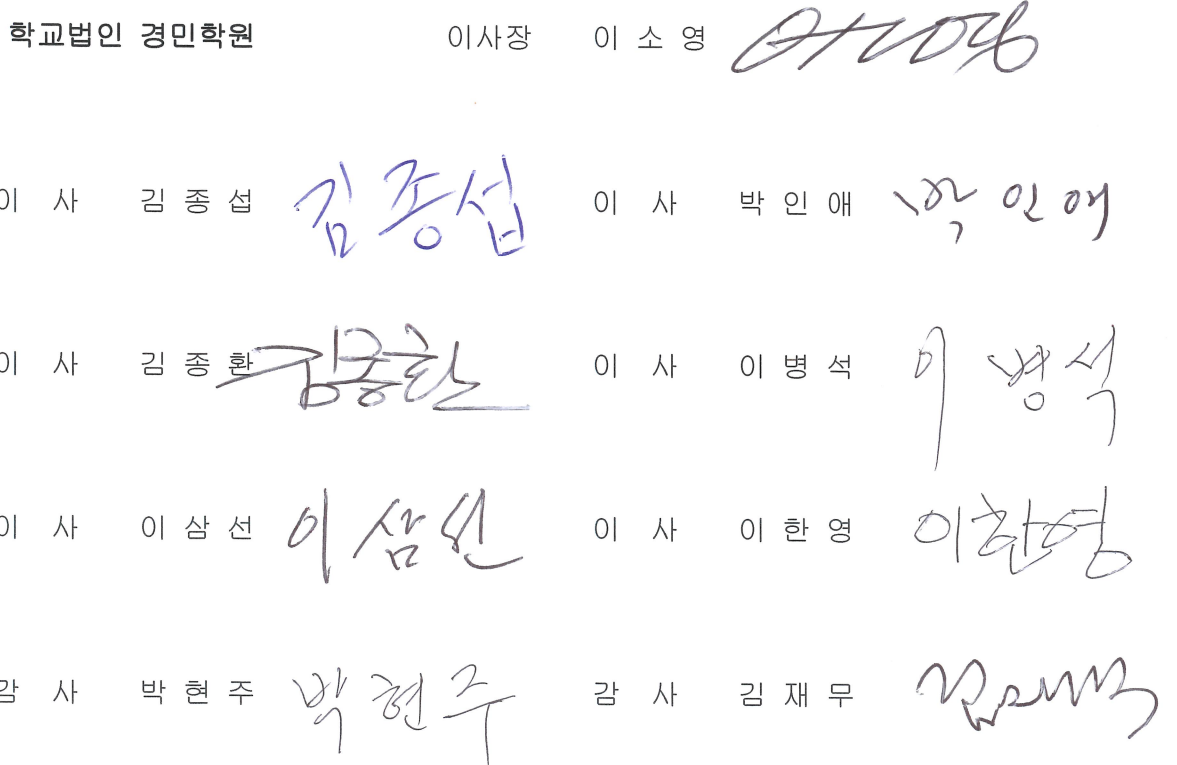 학교법인 경민학원 이사장 이 소 영
이 사 김 종 섭 김종섭 이 사 박 인 애 박인애
이 사 김 종 환 김종환 이 사 이 병 석 이병석
이 사 이 삼 선 이삼선 이 사 이 한 영 이한영
감 사 박 현 주 박현주 감 사 김 재 무